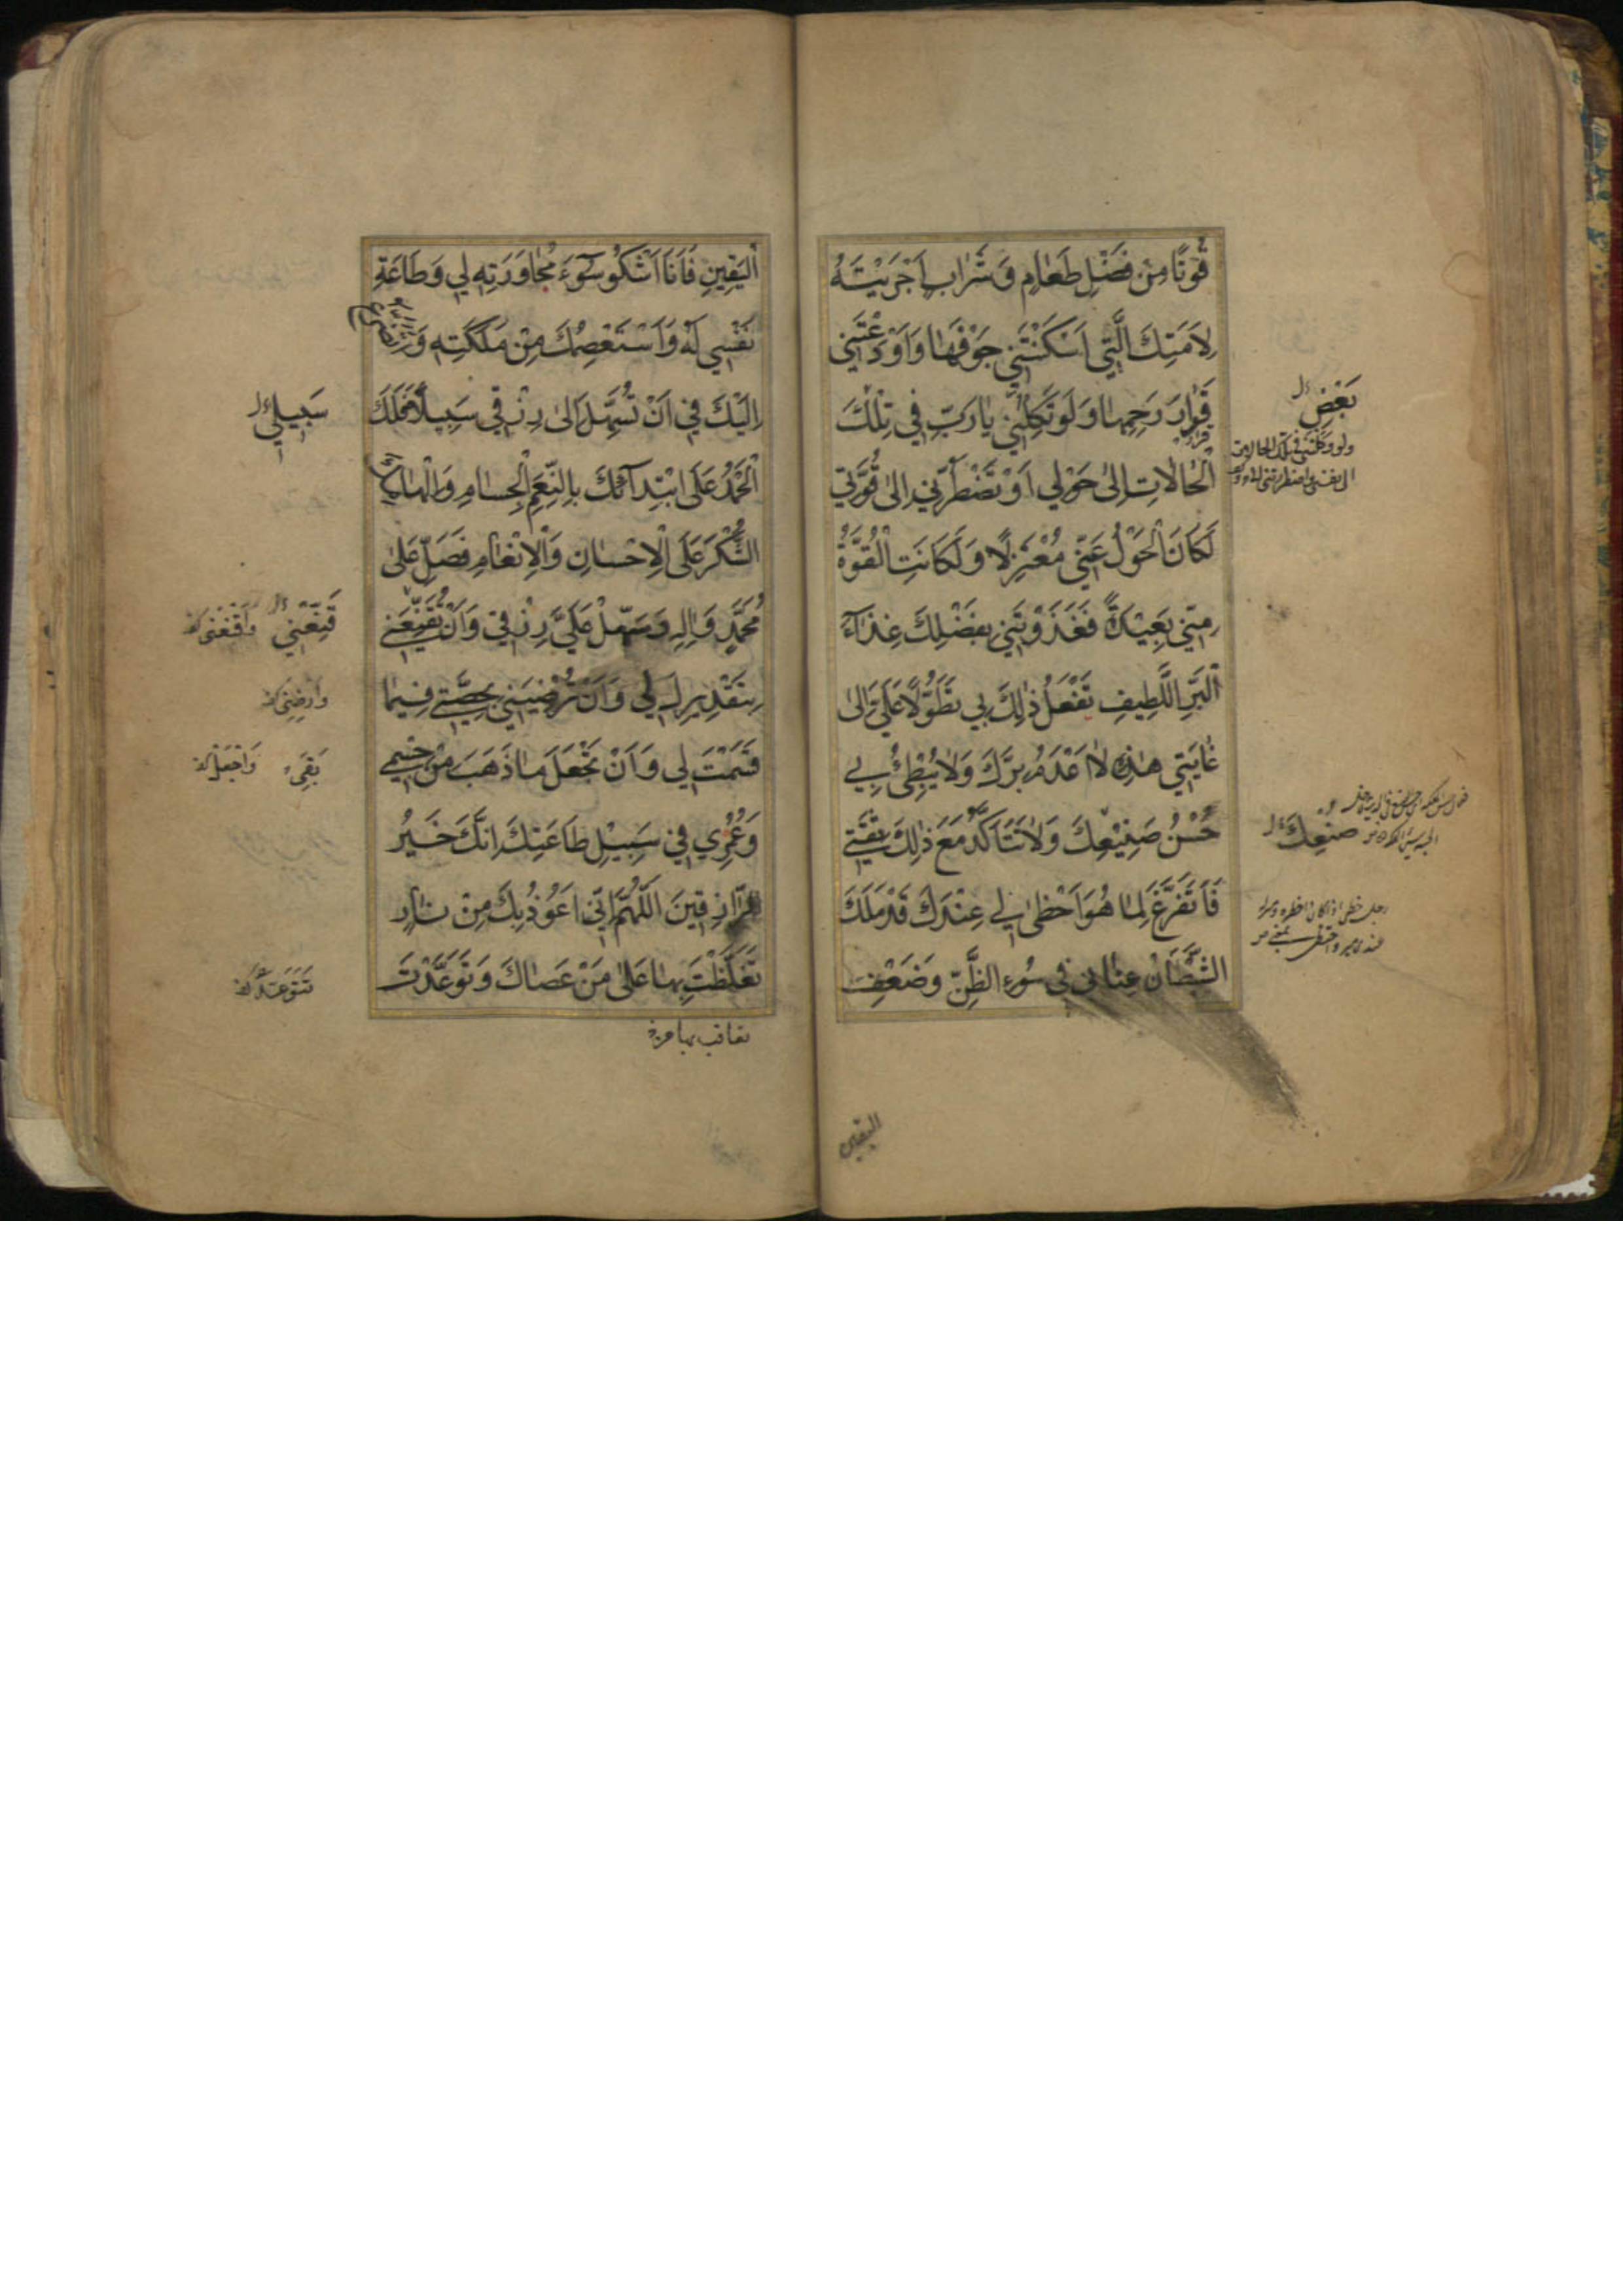 قُوتًا مِنْ فَضْلِ طَعَامٍ وَشَرَابٍ اَجْرَيْتَهُ
لِاَمَتِكَ الَّتِي اَسْكَنْتَنِي جَوْفَهَا وَاَوْدَعْتَنِي
قَرَارَ رَحِمِهَا وَلَوْ تَكِلْنِي يَا رَبِّ فِي تِلْكَ
الْحَالَاتِ اِلَى حَوْلِي اَوْ تَضْطَرُّنِي اِلَى قُوَّتِي
لَكَانَ الْحَوْلُ عَنِّي مُعْتَزِلًا وَلَكَانَتِ الْقُوَّةُ
مِنِّي بَعِيدَةً فَغَذَوْتَنِي بِفَضْلِكَ غِذَاءَ
الْبَرِّ اللَّطِيفِ تَفْعَلُ ذٰلِكَ بِي تَطَوُّلًا عَلَيَّ اِلَى
غَايَتِي هٰذِهِ لَا اَعْدَمُ بِرَّكَ وَلَا يُبْطِئُ بِي
حُسْنُ صَنِيعِكَ وَلَا تَتَاَكَّدُ مَعَ ذٰلِكَ ثِقَتِي
فَاَتَفَرَّغَ لِمَا هُوَ اَحْظٰى لِي عِنْدَكَ قَدْ مَلَكَ
الشَّيْطَانُ عِنَانِي فِي سُوءِ الظَّنِّ وَضَعْفِ
بَعْضِ
صُنْعِكَ
اليقين
الْيَقِينِ فَاَنَا اَشْكُو سُوءَ مُجَاوَرَتِهِ لِي وَطَاعَةِ
نَفْسِي لَهُ وَاَسْتَعْصِمُكَ مِنْ مَلَكَتِهِ وَاَتَضَرَّعُ
اِلَيْكَ فِي اَنْ تُسَهِّلَ اِلَى رِزْقِي سَبِيلًا فَلَكَ
الْحَمْدُ عَلَى ابْتِدَائِكَ بِالنِّعَمِ الْجِسَامِ وَاِلْهَامِكَ
الشُّكْرَ عَلَى الْاِحْسَانِ وَالْاِنْعَامِ فَصَلِّ عَلَى
مُحَمَّدٍ وَاٰلِهِ وَسَهِّلْ عَلَيَّ رِزْقِي وَاَنْ تُقَنِّعَنِي
بِتَقْدِيرِكَ لِي وَاَنْ تُرْضِيَنِي بِحِصَّتِي فِيمَا
قَسَمْتَ لِي وَاَنْ تَجْعَلَ مَا ذَهَبَ مِنْ جِسْمِي
وَعُمْرِي فِي سَبِيلِ طَاعَتِكَ اِنَّكَ خَيْرُ
الرَّازِقِينَ اَللّٰهُمَّ اِنِّي اَعُوذُ بِكَ مِنْ نَارٍ
تَغَلَّظْتَ بِهَا عَلٰى مَنْ عَصَاكَ وَتَوَعَّدْتَ
سَبِيلِي
قَنِّعْنِي وَاَقْنِعْنِي
وَارْضِنِي
بَقِيَ وَاجْعَلْ